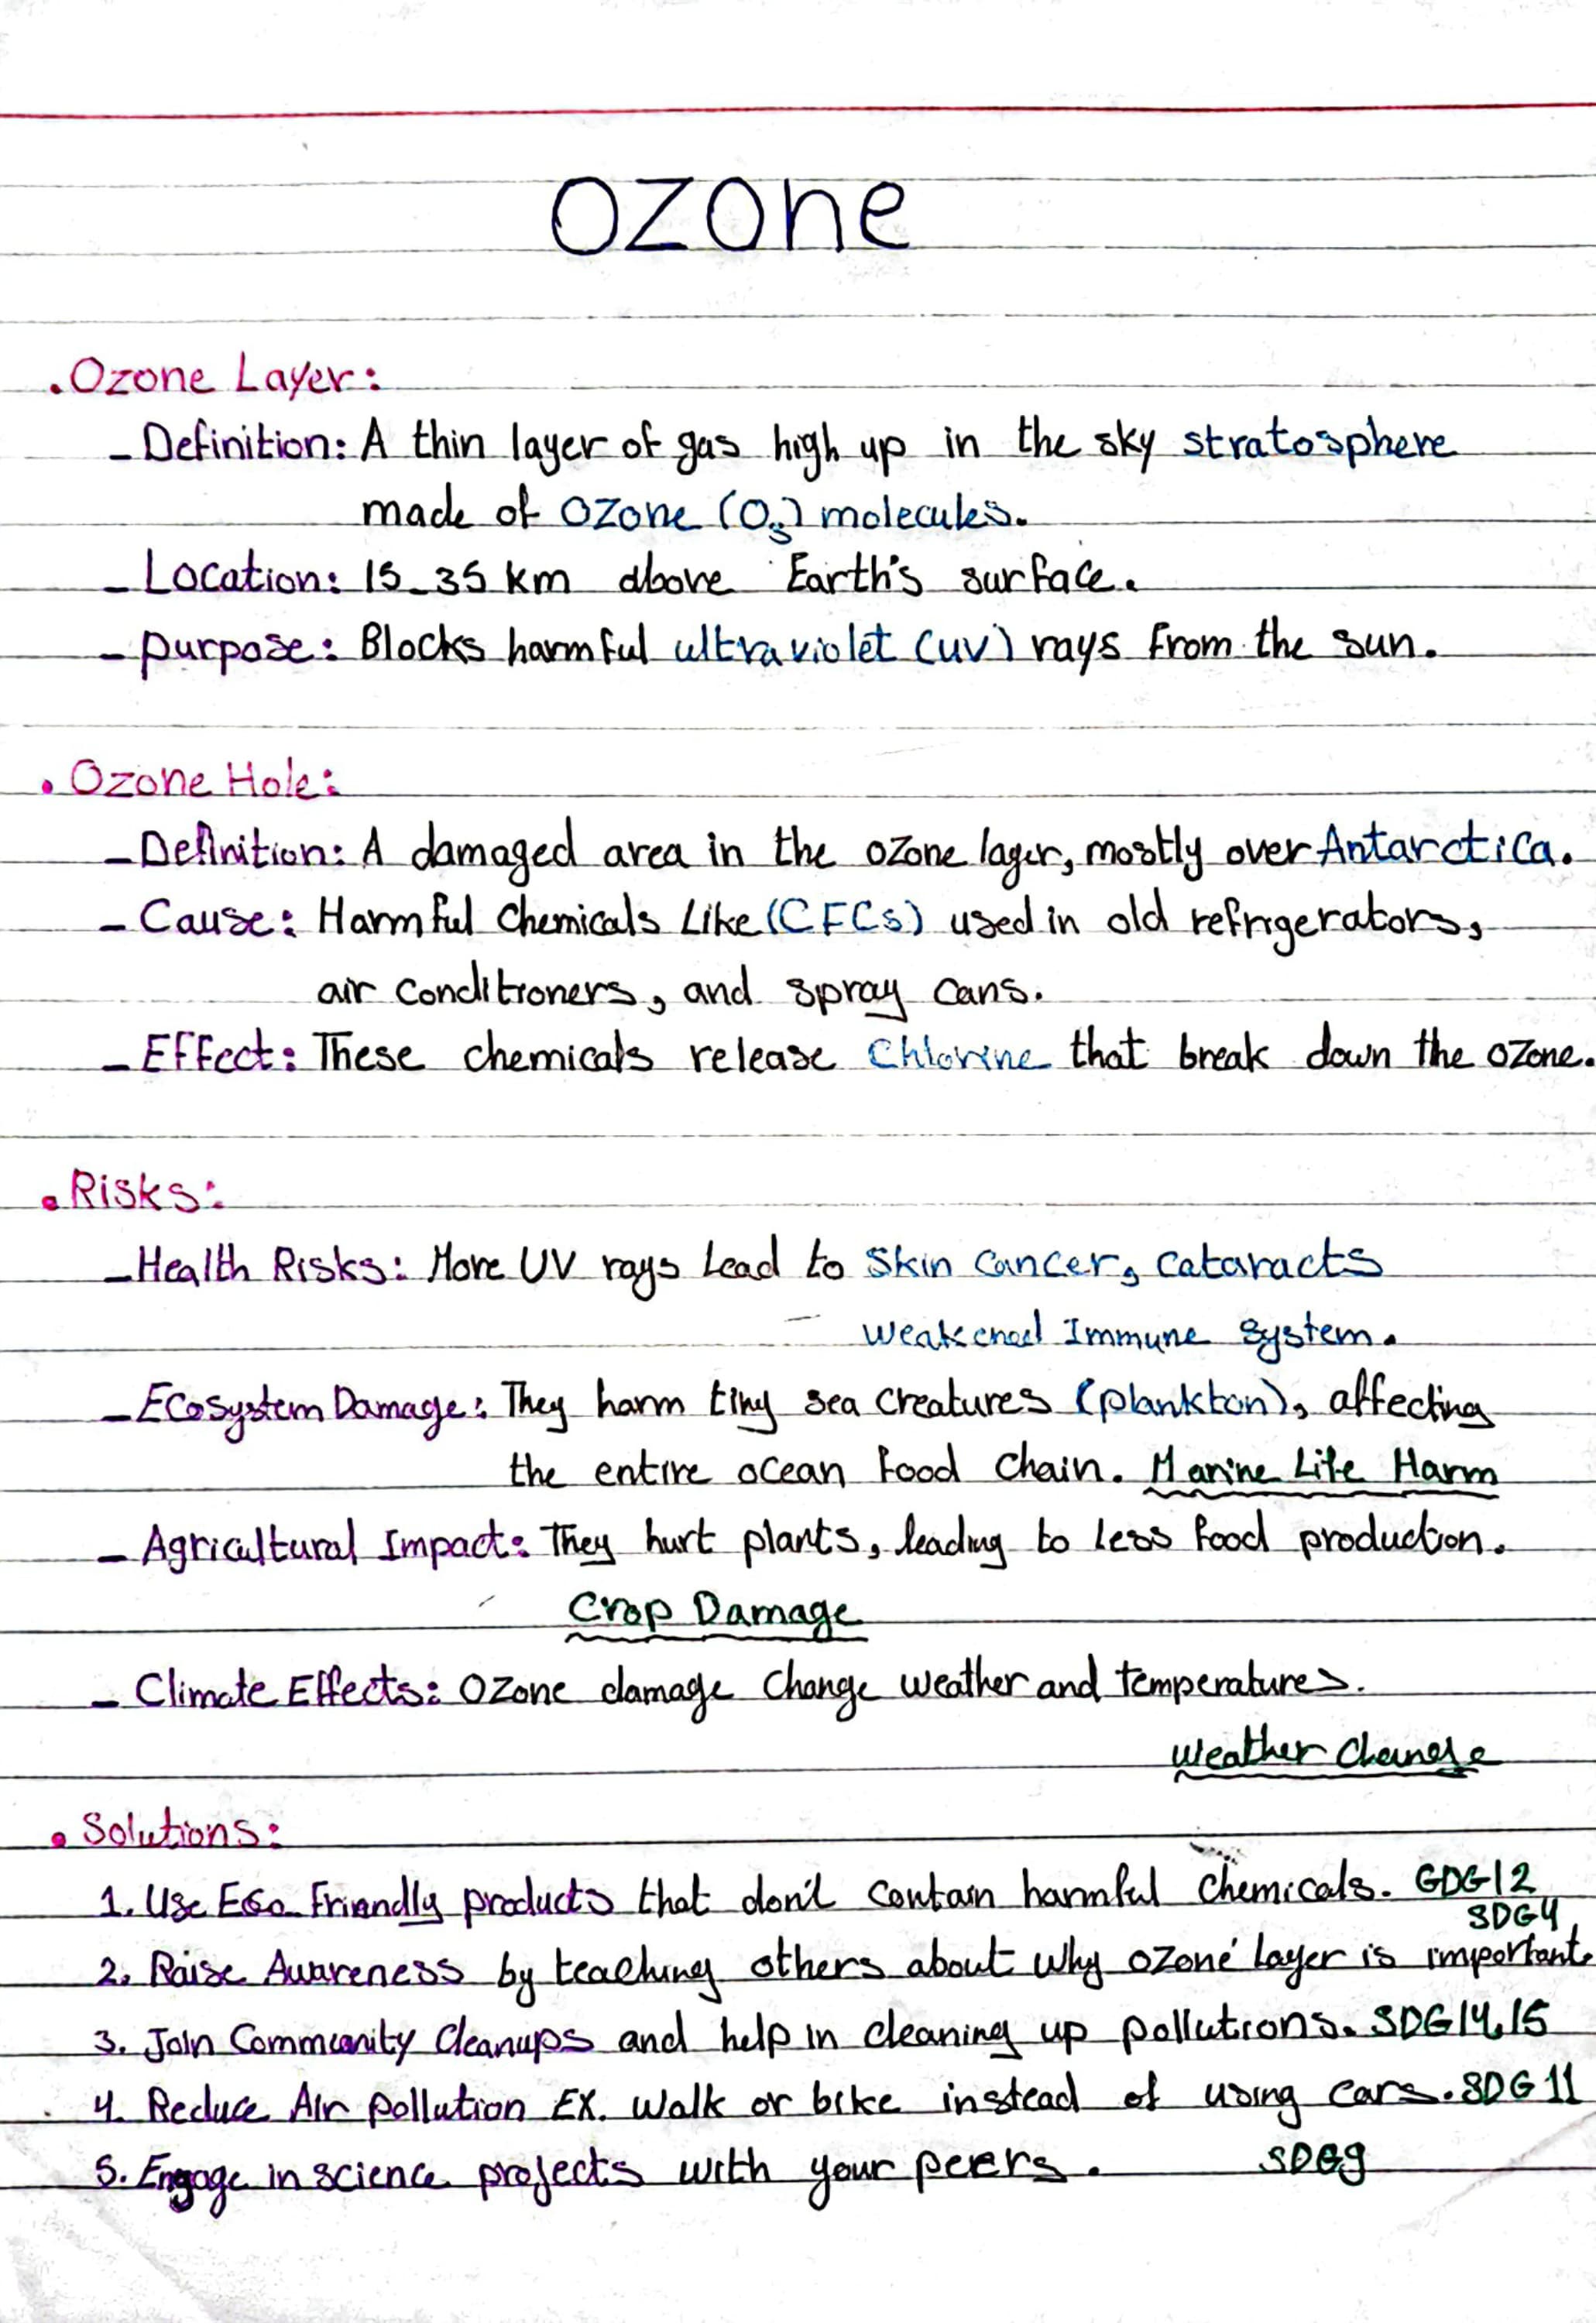 Ozone
. Ozone Layer:
- Definition: A thin layer of gas high up in the sky stratosphere
made of Ozone (O₃) molecules.
- Location: 15-35 km above Earth's surface.
- purpose: Blocks harmful ultraviolet (uv) rays From the sun.
. Ozone Hole:
- Definition: A damaged area in the ozone layer, mostly over Antarctica.
- Cause: Harmful Chemicals Like (CFCs) used in old refrigerators,
air conditioners, and spray cans.
- Effect: These chemicals release Chlorine that break down the ozone.
. Risks:
- Health Risks: More UV rays Lead to Skin Cancer, Cataracts
Weakened Immune System.
- Ecosystem Damage: They harm tiny sea creatures (plankton), affecting
the entire ocean food chain. Marine Life Harm
- Agricultural Impact: They hurt plants, leading to less food production.
Crop Damage
- Climate Effects: Ozone damage change weather and temperatures.
Weather Change
. Solutions:
1. Use Eco-Friendly products that don't contain harmful chemicals. GDG12
SDG4
2. Raise Awareness by teaching others about why ozone layer is important
3. Join Community Cleanups and help in cleaning up pollutions. SDG14,15
4. Reduce Air pollution EX. Walk or bike instead of using cars. SDG 11
5. Engage in science projects with your peers. SDG9